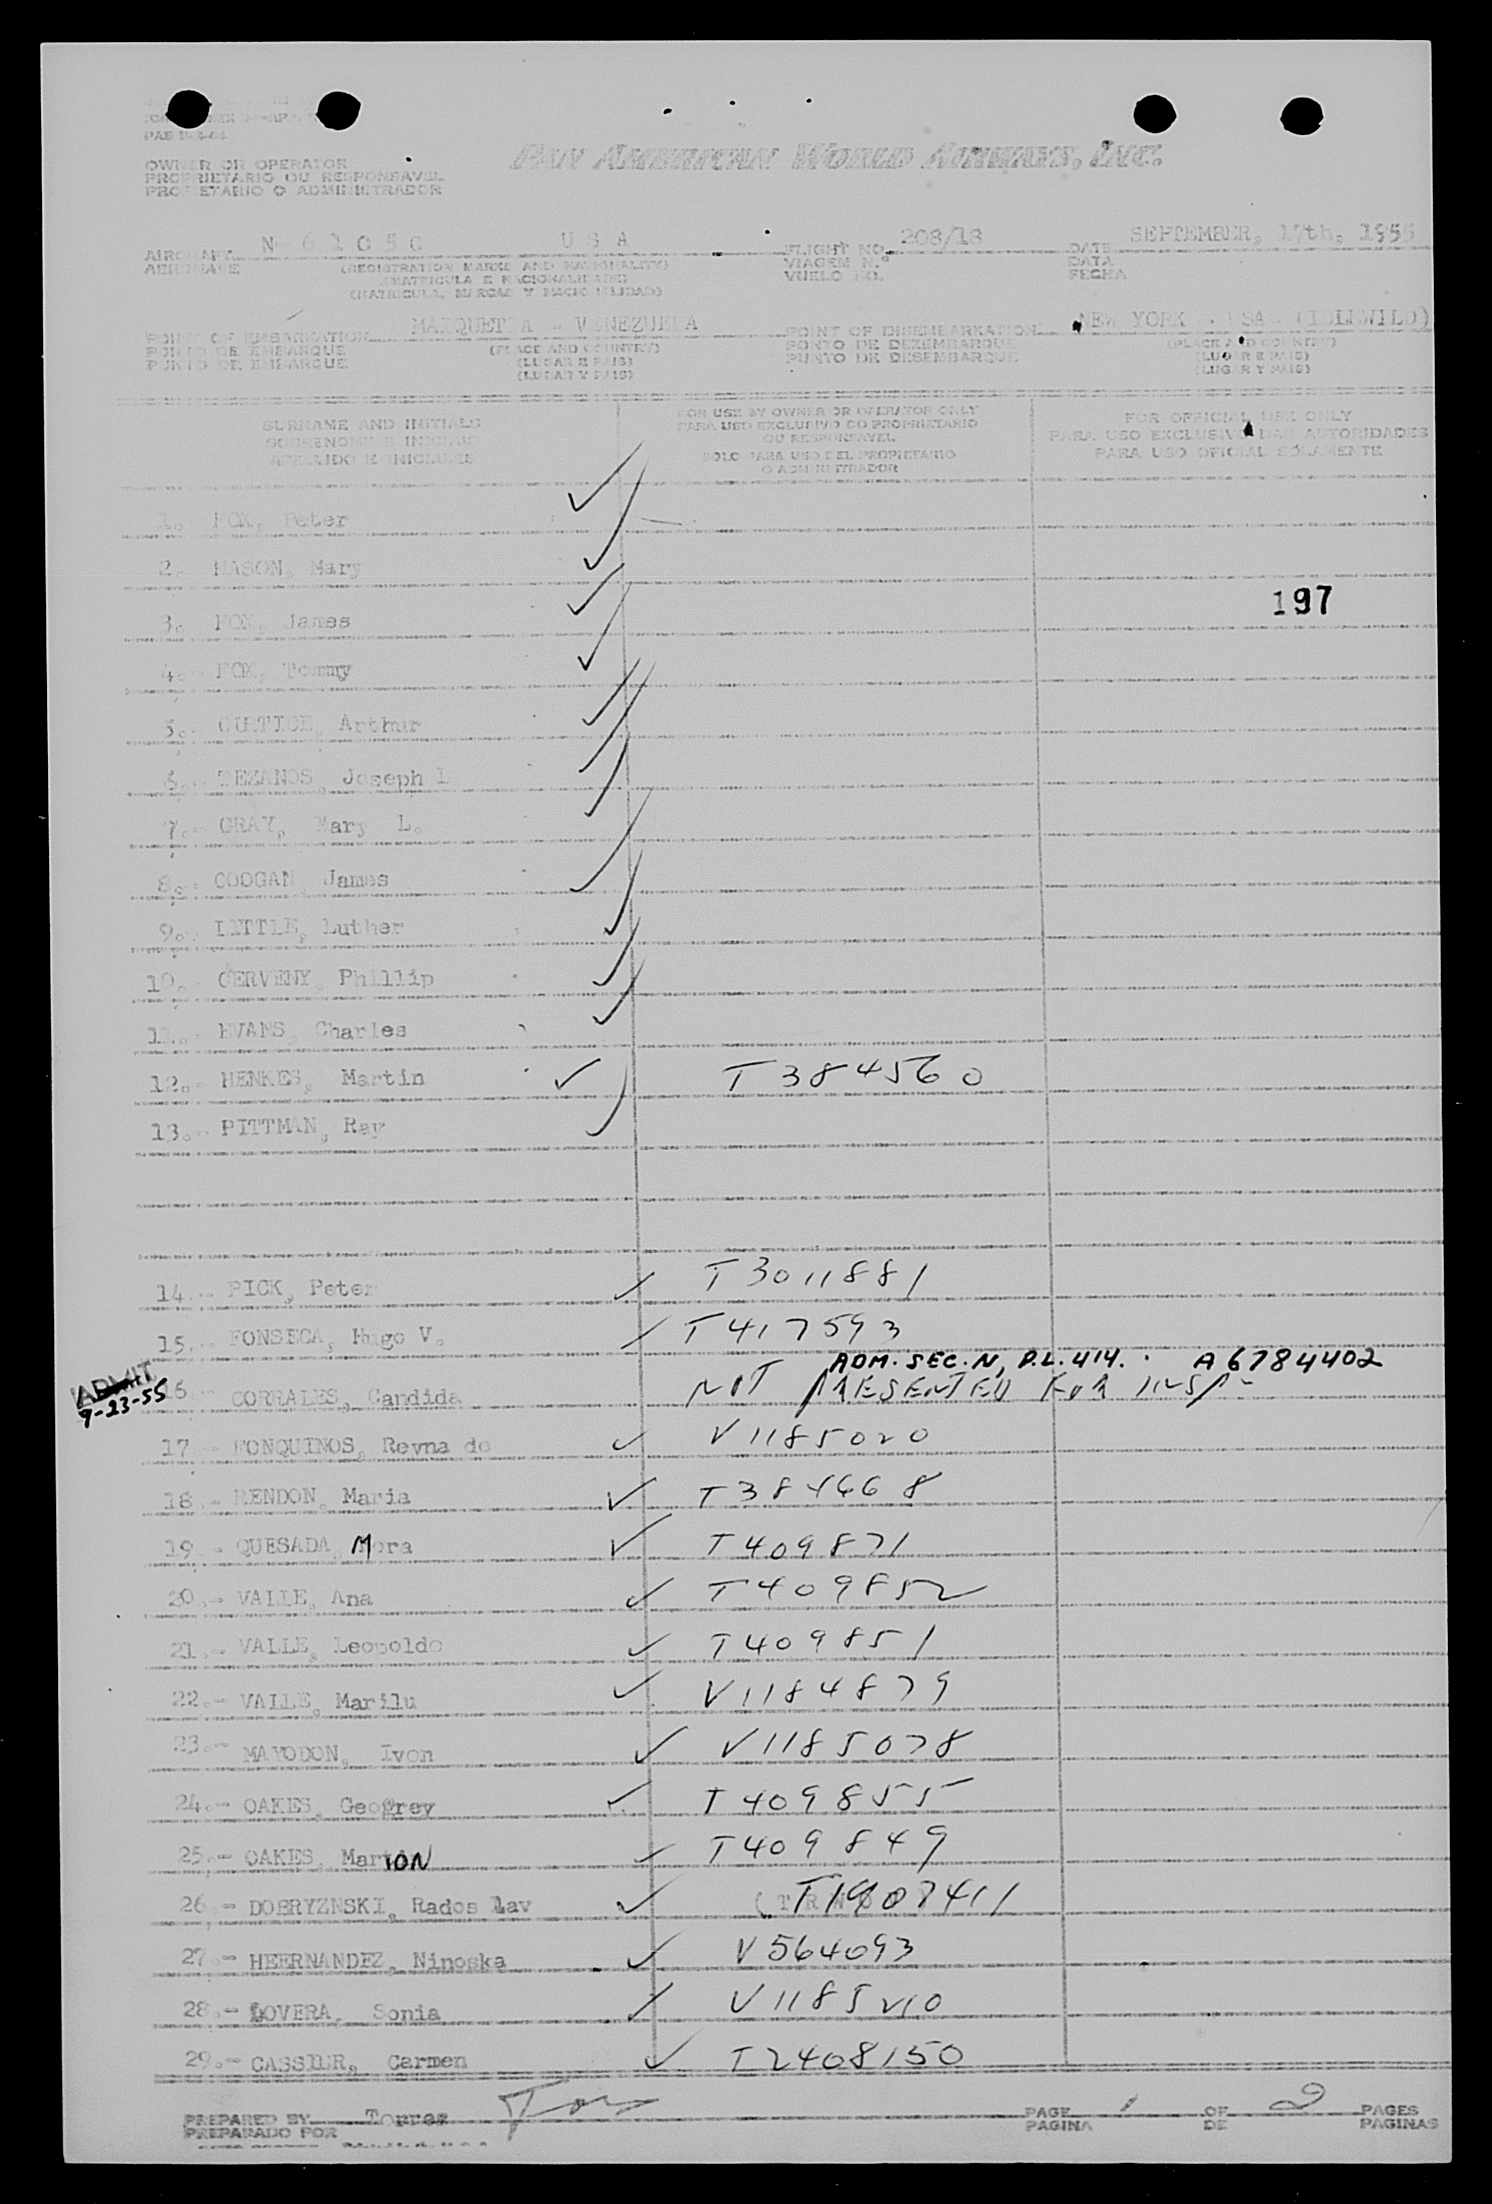 OWNER OR OPERATOR
PROPRIETARIO OU RESPONSAVEL
PROPIETARIO O ADMINISTRADOR
PAN AMERICAN WORLD AIRWAYS, INC.
AIRCRAFT U S A FLIGHT NO. 208/18 DATE SEPTEMBER, 17th, 1955
AERONAVE (REGISTRATION MARKS AND NATIONALITY) VIAGEM N.º DATA
(MATRICULA E NACIONALIDADE) VUELO NO. FECHA
(MATRICULA, MARCAS Y NACIONALIDAD)
POINT OF EMBARKATION MAIQUETIA - VENEZUELA POINT OF DISEMBARKATION NEW YORK - USA - (IDLEWILD)
PONTO DE EMBARQUE (PLACE AND COUNTRY) PONTO DE DEZEMBARQUE (PLACE AND COUNTRY)
PUNTO DE EMBARQUE (LUGAR E PAIS) PUNTO DE DESEMBARQUE (LUGAR E PAIS)
(LUGAR Y PAIS) (LUGAR Y PAIS)
SURNAME AND INITIALS FOR USE BY OWNER OR OPERATOR ONLY FOR OFFICIAL USE ONLY
SOBRENOME E INICIAIS PARA USO EXCLUSIVO DO PROPRIETARIO PARA USO EXCLUSIVO DAS AUTORIDADES
OU RESPONSAVEL
APELLIDO E INICIALES SOLO PARA USO DEL PROPIETARIO PARA USO OFICIAL SOLAMENTE
O ADMINISTRADOR
1.- FOX, Peter
2.- MASON, Mary
197
3.- FOX, James
4.- FOX, Tommy
5.- CURTICE, Arthur
6.- TEZANOS, Joseph L
7.- GRAY, Mary L.
8.- COOGAN, James
9.- LITTLE, Luther
10.- CERVENY, Phillip
11.- EVANS, Charles
12.- HENKES, Martin T 384560
13.- PITTMAN, Ray
14.- PICK, Peter T3011881
15.- FONSECA, Hugo V. T417593
ADM. SEC. N, P.L. 414. A6784402
ADMIT 16.- CORRALES, Candida NOT PRESENTED FOR INSP-
9-23-55
17.- FONQUINOS, Reyna de V1185020
18.- RENDON, Maria T384668
19.- QUESADA, Mora T409871
20.- VALLE, Ana T409852
21.- VALLE, Leopoldo T409851
22.- VALLE, Marilu V1184879
23.- MAYODON, Ivon V1185078
24.- OAKES, Geogrey T409855
25.- OAKES, Marion T409849
26.- DOBRYZNSKI, Rados lav T1907411
27.- HEERNANDEZ, Ninoska V564093
28.- LOVERA, Sonia V1185210
29.- CASSIER, Carmen T2408150
PREPARED BY Torres PAGE 1 OF 2 PAGES
PREPARADO POR PAGINA DE PAGINAS